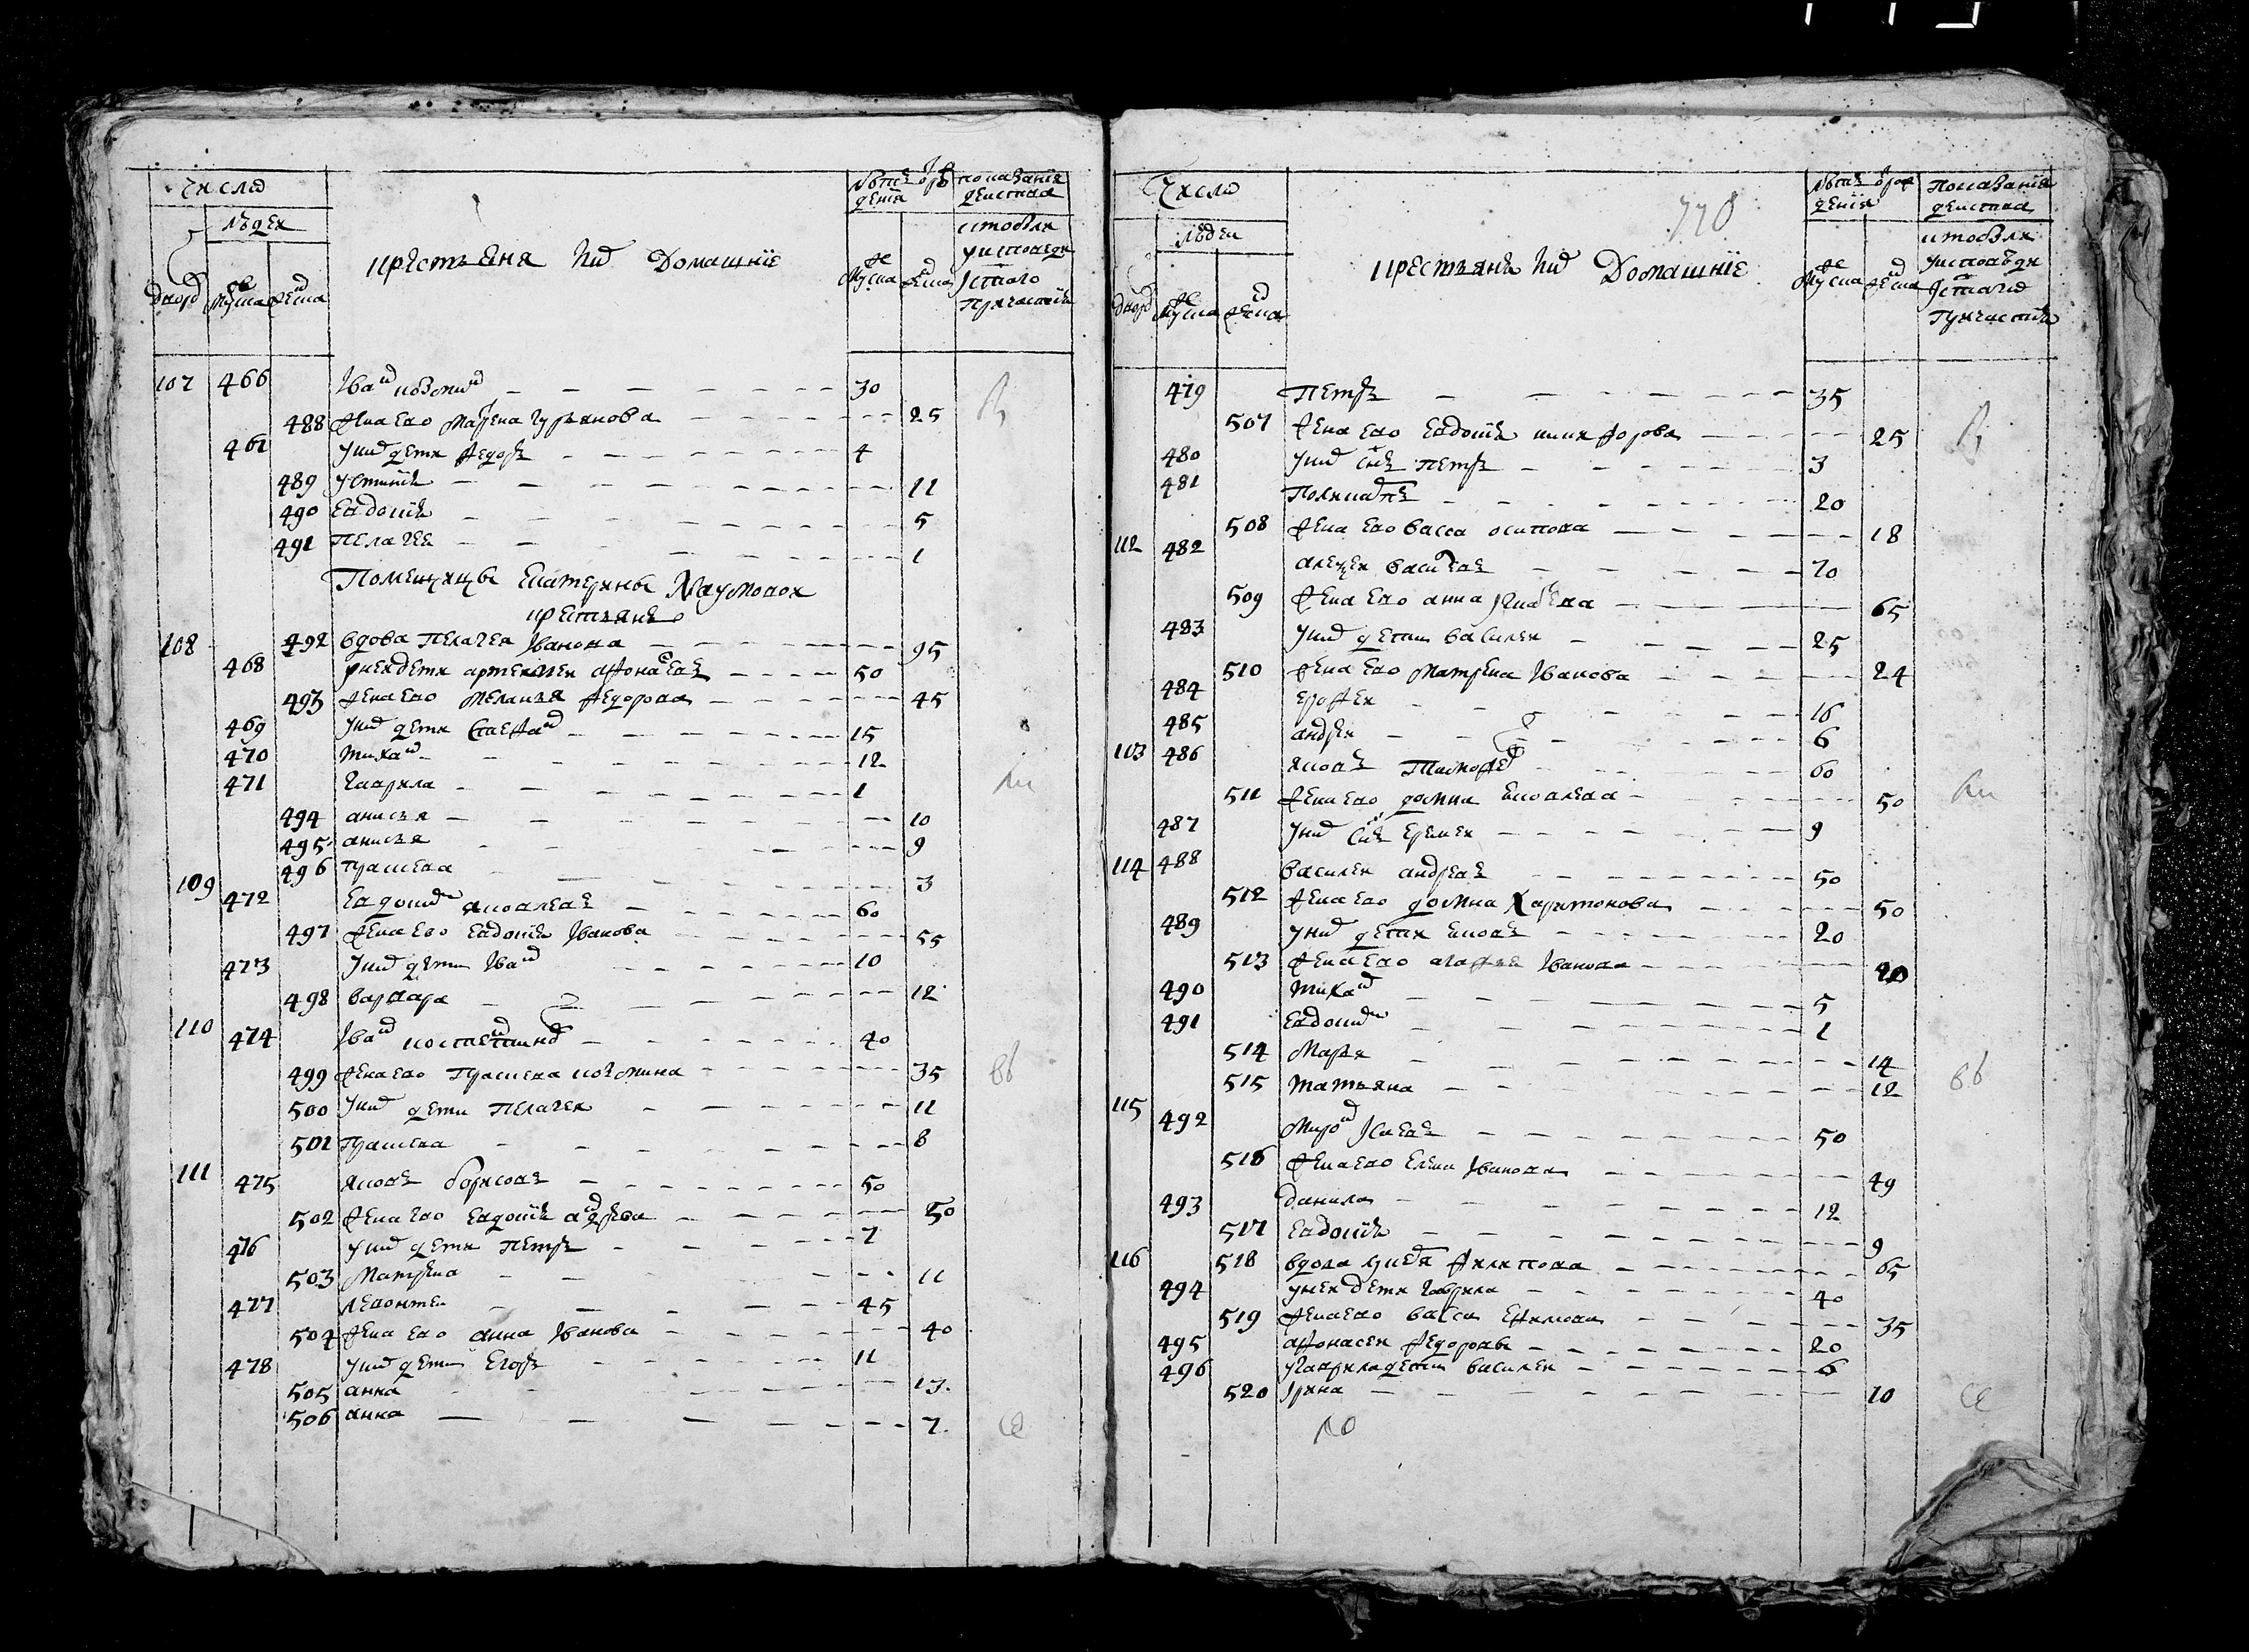 Число
людеи
дворов
Мужеска
женска
крестьяня и их Домашние
лета от рождения
Мужеска
женска
показания действа
кто был у исповеди и святого причастия
107 466 Иван козмин 30
488 жена ево Марфена гурьянова 25
467 у них дети федор 4
489 устинья 11
490 Евдокия 5
491 Пелагея 1
Помещицы Екатерины Наумовои
крестьяне
108 492 вдова Пелагея Иванова 95
468 у неи дети артемеи афонасев 50
493 жена ево Меланья федорова 45
469 у них дети Степан 15
470 михаил 12
471 гаврила 1
494 анисья 10
495 анисья 9
496 прасковя 3
109 472 Евдоким яковлев 60
497 жена ево Евдокия Иванова 55
473 у них дети Иван 10
498 варвара 12
110 474 Иван костентинов 40
499 жена ево Прасковя козмина 35
500 у них дети Пелагея 11
501 Прасковя 8
111 475 яков борисов 50
502 жена ево евдокия андреева 50
476 у них дети Петр 7
503 Матрена 11
477 леонтеи 45
504 жена ево анна Иванова 40
478 у них дети Егор 11
505 анна 13
506 анна 7
770
Число
людеи
дворов
Мужеска
женска
крестьяня и их Домашние
лета от рождения
Мужеска
женска
Показания действа
кто был у исповеди и святого причастия
479 Петр 35
507 жена ево Евдокия никифорова 25
480 у них сын Петр 3
481 Поликарп 20
508 жена ево васса осипова 18
112 482 алексеи васильев 70
509 жена ево анна игнатьева 65
483 у них дети василеи 25
510 жена ево Матрена Иванова 24
484 ерофеи 16
485 андреи 6
113 486 яков тимофеев 60
511 жена ево домна яковлева 50
487 у них сын Еремеи 9
114 488 василеи андреев 50
512 жена ево домна Харитонова 50
489 у них дети яков 20
513 жена ево агафья Иванова 20
490 михаил 5
491 Евдоким 1
514 Марья 14
515 татьяна 12
115 492 Мирон Исаев 50
516 жена ево Елена Иванова 49
493 данила 12
517 Евдокия 9
116 518 вдова филипова 65
494 у неи дети гаврила 40
519 жена ево васса Ефимова 35
495 афонасеи федоров 20
496 у гаврила дети василеи 6
520 Ирина 10